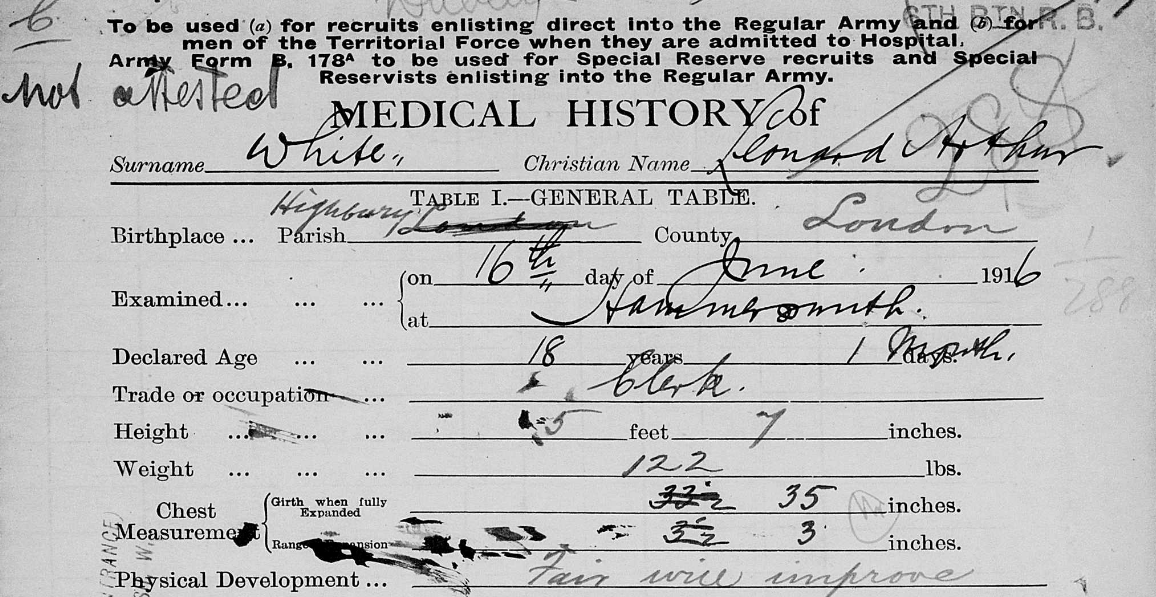 6TH BTN R. B.
To be used (a) for recruits enlisting direct into the Regular Army and (b) for
men of the Territorial Force when they are admitted to Hospital.
Army Form B. 178A to be used for Special Reserve recruits and Special
Reservists enlisting into the Regular Army.
not attested
MEDICAL HISTORY of
Surname White Christian Name Leonard Arthur
TABLE I.—GENERAL TABLE.
Birthplace ... Parish Highbury London County London
Examined ... ... ... on 16th day of June 1916
at Hammersmith.
Declared Age ... ... 18 years 1 Month. days.
Trade or occupation ... Clerk.
Height ... ... ... 5 feet 7 inches.
Weight ... ... ... 122 lbs.
Chest Measurement Girth when fully Expanded 33½ 35 inches.
Range Expansion 3½ 3 inches.
Physical Development ... Fair will improve